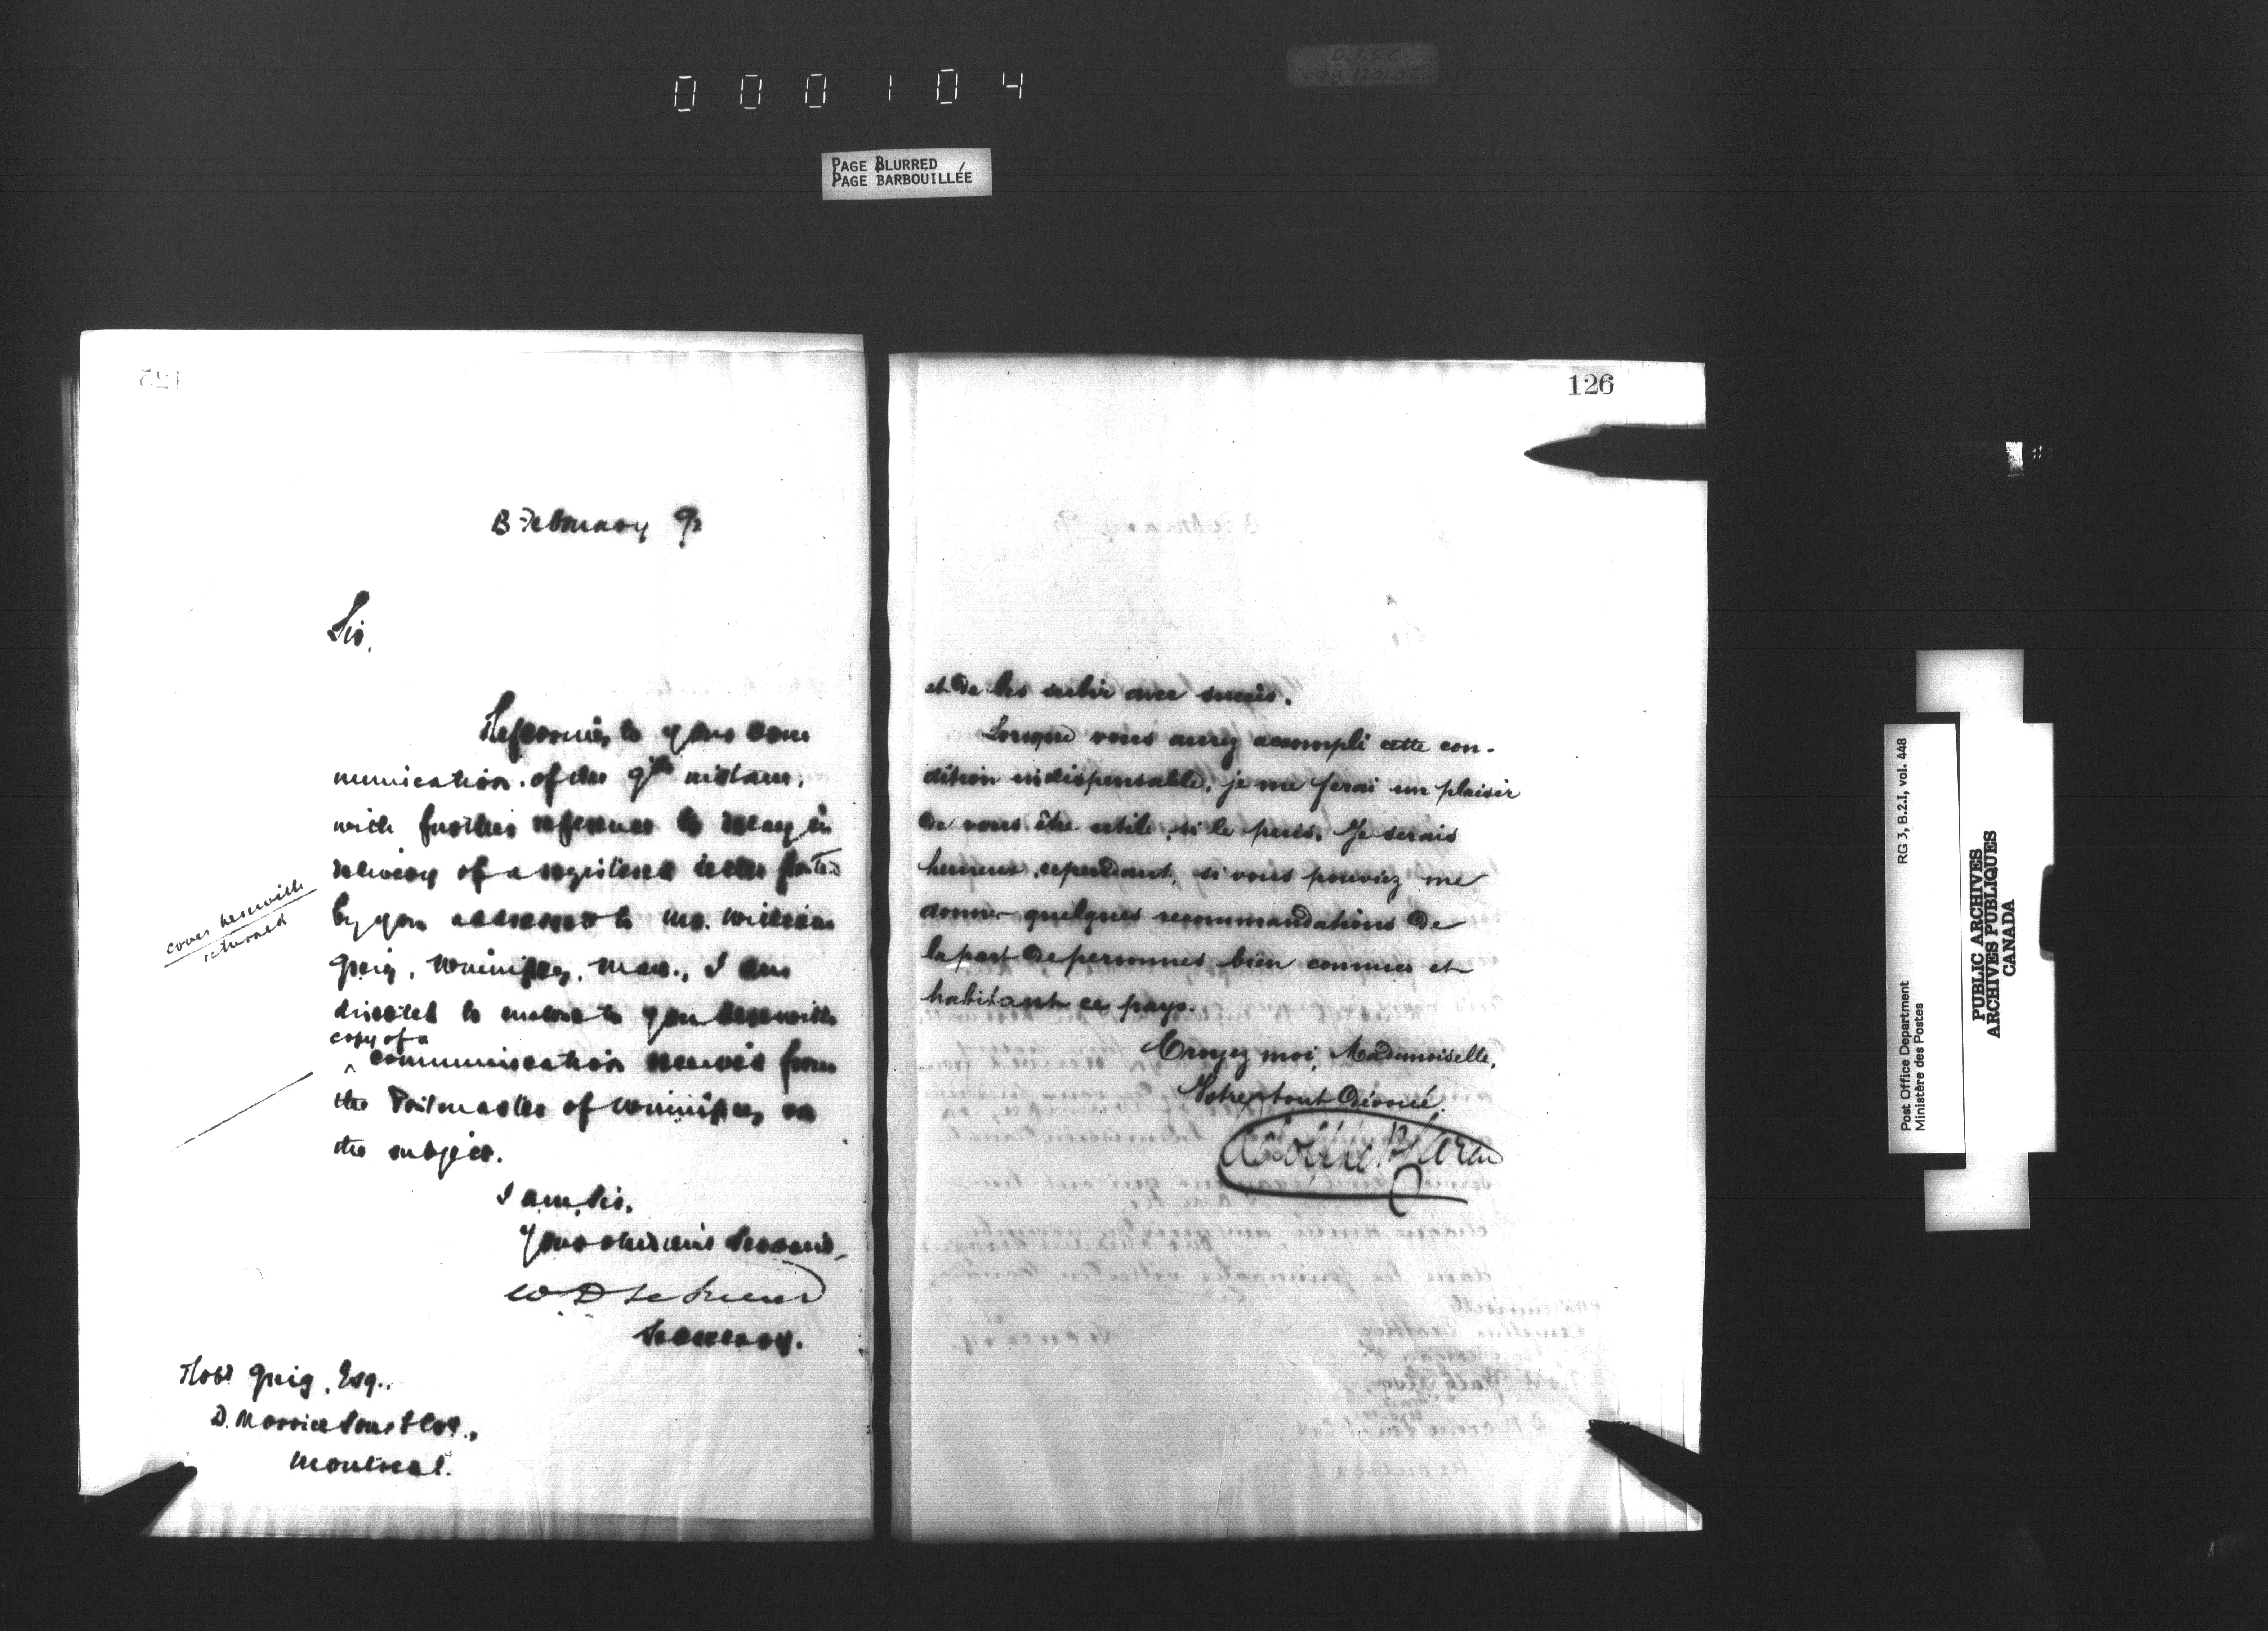 000104
PAGE BLURRED
PAGE BARBOUILLÉE
125
13 February 92
Sir,
Referring to your com
munication of the 9th instant,
with further reference to delay in
delivery of a registered letter posted
by you addressed to Mr. William
Greig, Winnipeg, Man., I am
directed to enclose to you herewith
copy of a
^ communication received from
the Postmaster of Winnipeg on
the subject.
cover herewith
returned
I am, Sir,
Your obedient Servant,
W D LeSueur
Secretary.
Robt Greig, Esq.,
D. Morrice Sons & Co.,
Montreal.
126
et de les subir avec succès.
Lorsque vous aurez accompli cette con-
dition indispensable, je me ferai un plaisir
de vous être utile, si le puis. Je serais
heureux, cependant, si vous pouviez me
donner quelques recommandations de
la part de personnes bien connues et
habitant ce pays.
Croyez moi, Mademoiselle,
Votre tout dévoué,
RG 3, B.2.I, vol. 448
Post Office Department
Ministère des Postes
PUBLIC ARCHIVES
ARCHIVES PUBLIQUES
CANADA